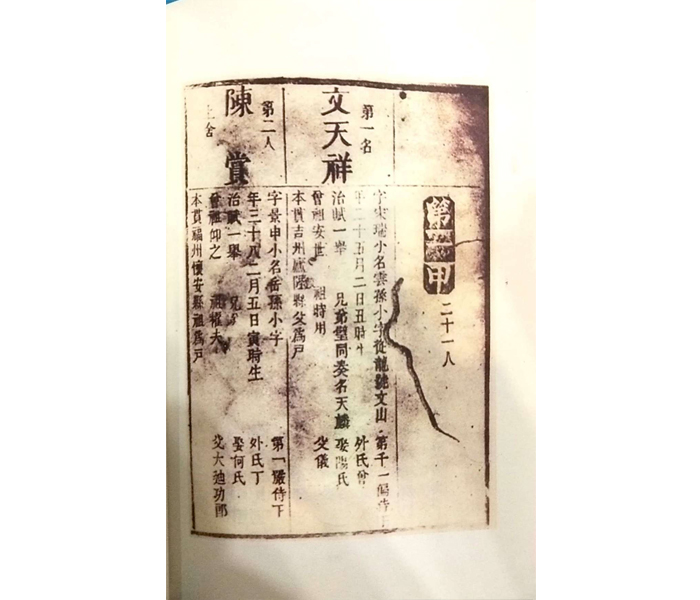 第一甲
二十一人
第一名
文天祥
字宋瑞小名雲孫小字從龍號文山 第千一偏侍下
年二十五月二日丑時生 外氏曾
治賦一舉 兄弟聖同奏名天麟 娶歐陽氏
曾祖安世 祖時用 父儀
本貫吉州廬陵縣父為戶
第二人
陳賞
上舍
字景申小名岳孫小字 第一嚴侍下
年三十八二月五日寅時生 外氏丁
治賦一舉 兄弟 娶何氏
曾祖仰之 祖權夫 父大迪功郎
本貫福州懷安縣祖為戶